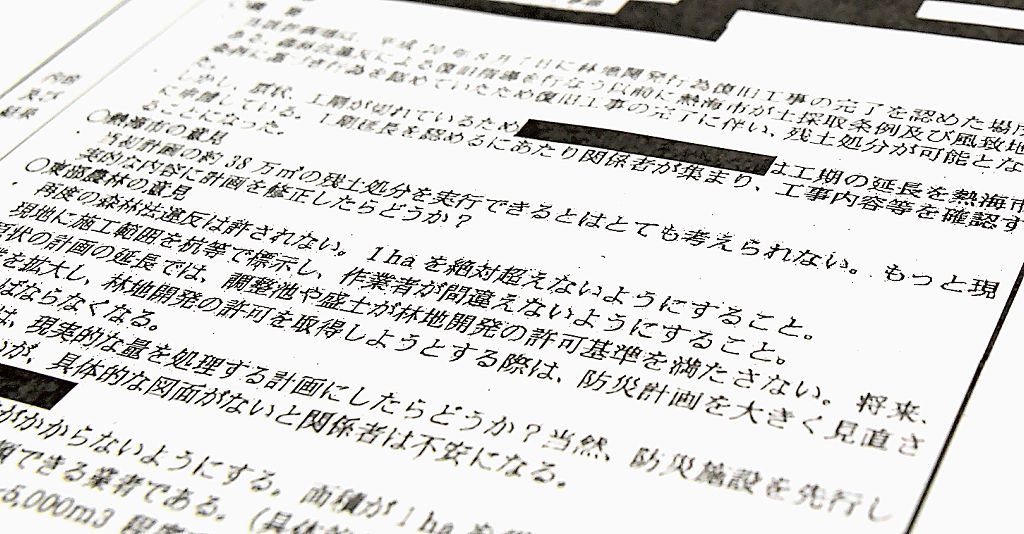 概要
当該計画場は、平成20年8月7日に林地開発行為復旧工事の完了を認めた場所
ある。森林法違反による復旧指導を行なう以前に熱海市が土採取条例及び風致地
条例に基づき行為を認めていたため復旧工事の完了に伴い、残土処分が可能とな
た。
しかし、現状、工期が切れているため は工期の延長を熱海市
に申請している。工期延長を認めるにあたり関係者が集まり、工事内容等を確認す
ることになった。
内容
及び
結果
○熱海市の意見
当初計画の約38万㎥の残土処分を実行できるとはとても考えられない。もっと現
実的な内容に計画を修正したらどうか?
○東部農林の意見
・再度の森林法違反は許されない。1haを絶対超えないようにすること。
現地に施工範囲を杭等で標示し、作業者が間違えないようにすること。
現状の計画の延長では、調整池や盛土が林地開発の許可基準を満たさない。将来、
を拡大し、林地開発の許可を取得しようとする際は、防災計画を大きく見直さ
ばならなくなる。
は、現実的な量を処理する計画にしたらどうか?当然、防災施設を先行し
が、具体的な図面がないと関係者は不安になる。
がかからないようにする。面積が1haを
できる業者である。(具体的
5,000m3 程度